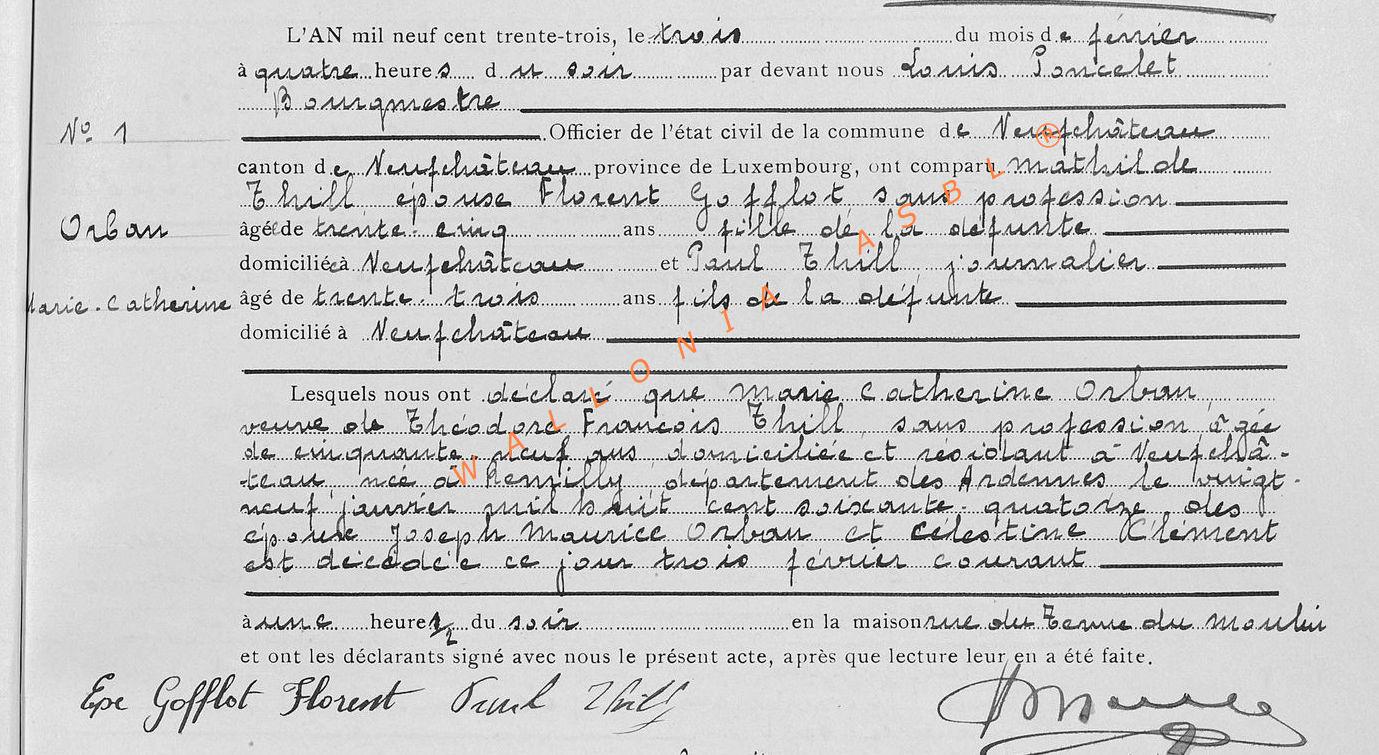 L'AN mil neuf cent trente-trois, le trois du mois de février
à quatre heures du soir par devant nous Louis Poncelet
Bourgmestre
Nº 1
Officier de l'état civil de la commune de Neufchâteau
canton de Neufchâteau province de Luxembourg, ont comparu Mathilde
Thill épouse Florent Gofflot sans profession
Orban
âgée de trente-cinq ans fille de la défunte
domiciliée à Neufchâteau et Paul Thill, journalier
Marie-Catherine
âgé de trente-trois ans fils de la défunte
domicilié à Neufchâteau
Lesquels nous ont déclaré que Marie Catherine Orban,
veuve de Théodore François Thill, sans profession, âgée
de cinquante-neuf ans, domiciliée et résidant à Neufchâ-
teau, née à Remilly, département des Ardennes le vingt-
neuf janvier mil huit cent soixante-quatorze des
époux Joseph Maurice Orban et Célestine Clément
est décédée ce jour trois février courant
à une heure 1/2 du soir en la maison rue du Terme du moulin
et ont les déclarants signé avec nous le présent acte, après que lecture leur en a été faite.
Epe Gofflot Florent Paul Thill
WALLONIA ASBL ®